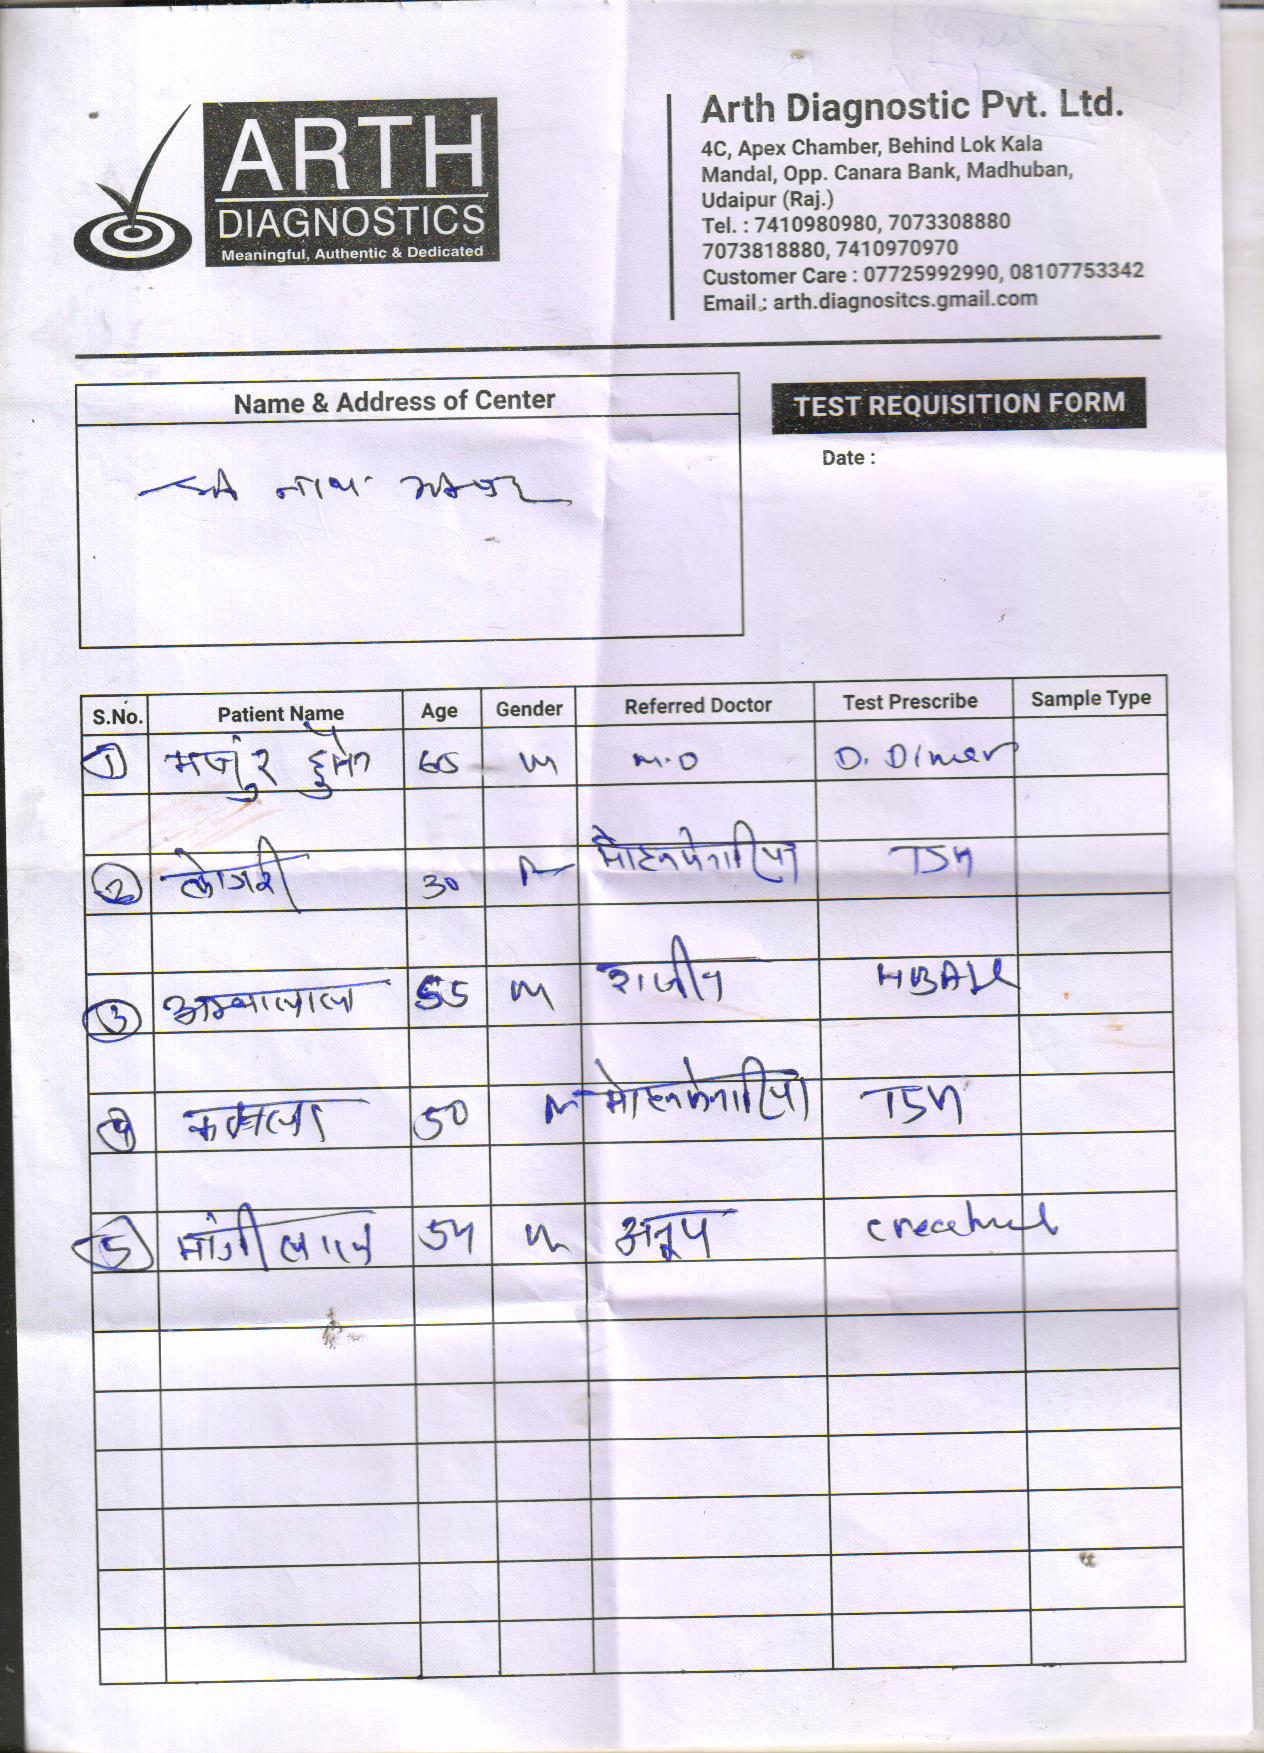 ARTH
DIAGNOSTICS
Meaningful, Authentic & Dedicated
Arth Diagnostic Pvt. Ltd.
4C, Apex Chamber, Behind Lok Kala
Mandal, Opp. Canara Bank, Madhuban,
Udaipur (Raj.)
Tel. : 7410980980, 7073308880
7073818880, 7410970970
Customer Care : 07725992990, 08107753342
Email : arth.diagnositcs.gmail.com
Name & Address of Center
TEST REQUISITION FORM
Date :
S.No. Patient Name Age Gender Referred Doctor Test Prescribe Sample Type
1 M M.D D. Dimer
2 30 TSH
3 अम्बालाल 55 M राजीव
4 कमला 50 TSH
5 मांगीलाल 54 M अनूप